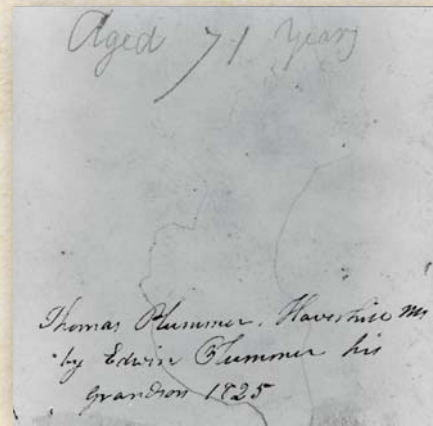 Aged 71 Years
Thomas Plummer, Haverhill Ms
by Edwin Plummer his
grandson 1825